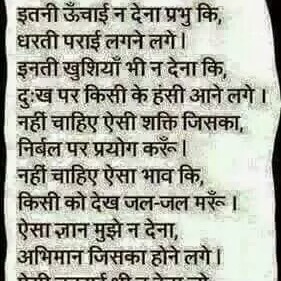 इतनी ऊँचाई न देना प्रभु कि,
धरती पराई लगने लगे।
इनती खुशियाँ भी न देना कि,
दुःख पर किसी के हंसी आने लगे।
नहीं चाहिए ऐसी शक्ति जिसका,
निर्बल पर प्रयोग करूँ।
नहीं चाहिए ऐसा भाव कि,
किसी को देख जल-जल मरूँ।
ऐसा ज्ञान मुझे न देना,
अभिमान जिसका होने लगे।